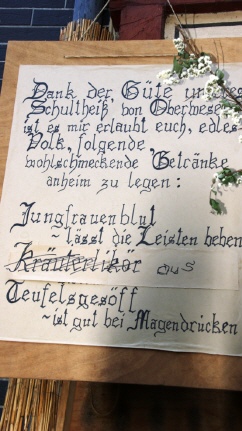 Dank der Güte unseres
Schultheiß von Oberwesel
ist es mir erlaubt euch, edles
Volk, folgende,
wohlschmeckende Getränke
anheim zu legen:
Jungfrauenblut
~lässt die Leisten beben
Kräuterlikör aus
Teufelsgesöff
~ist gut bei Magendrücken